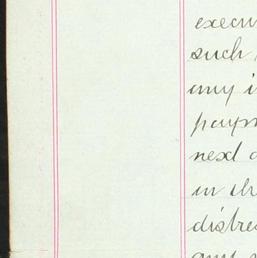 execu
such
any i
paym
next
in th
distre
any